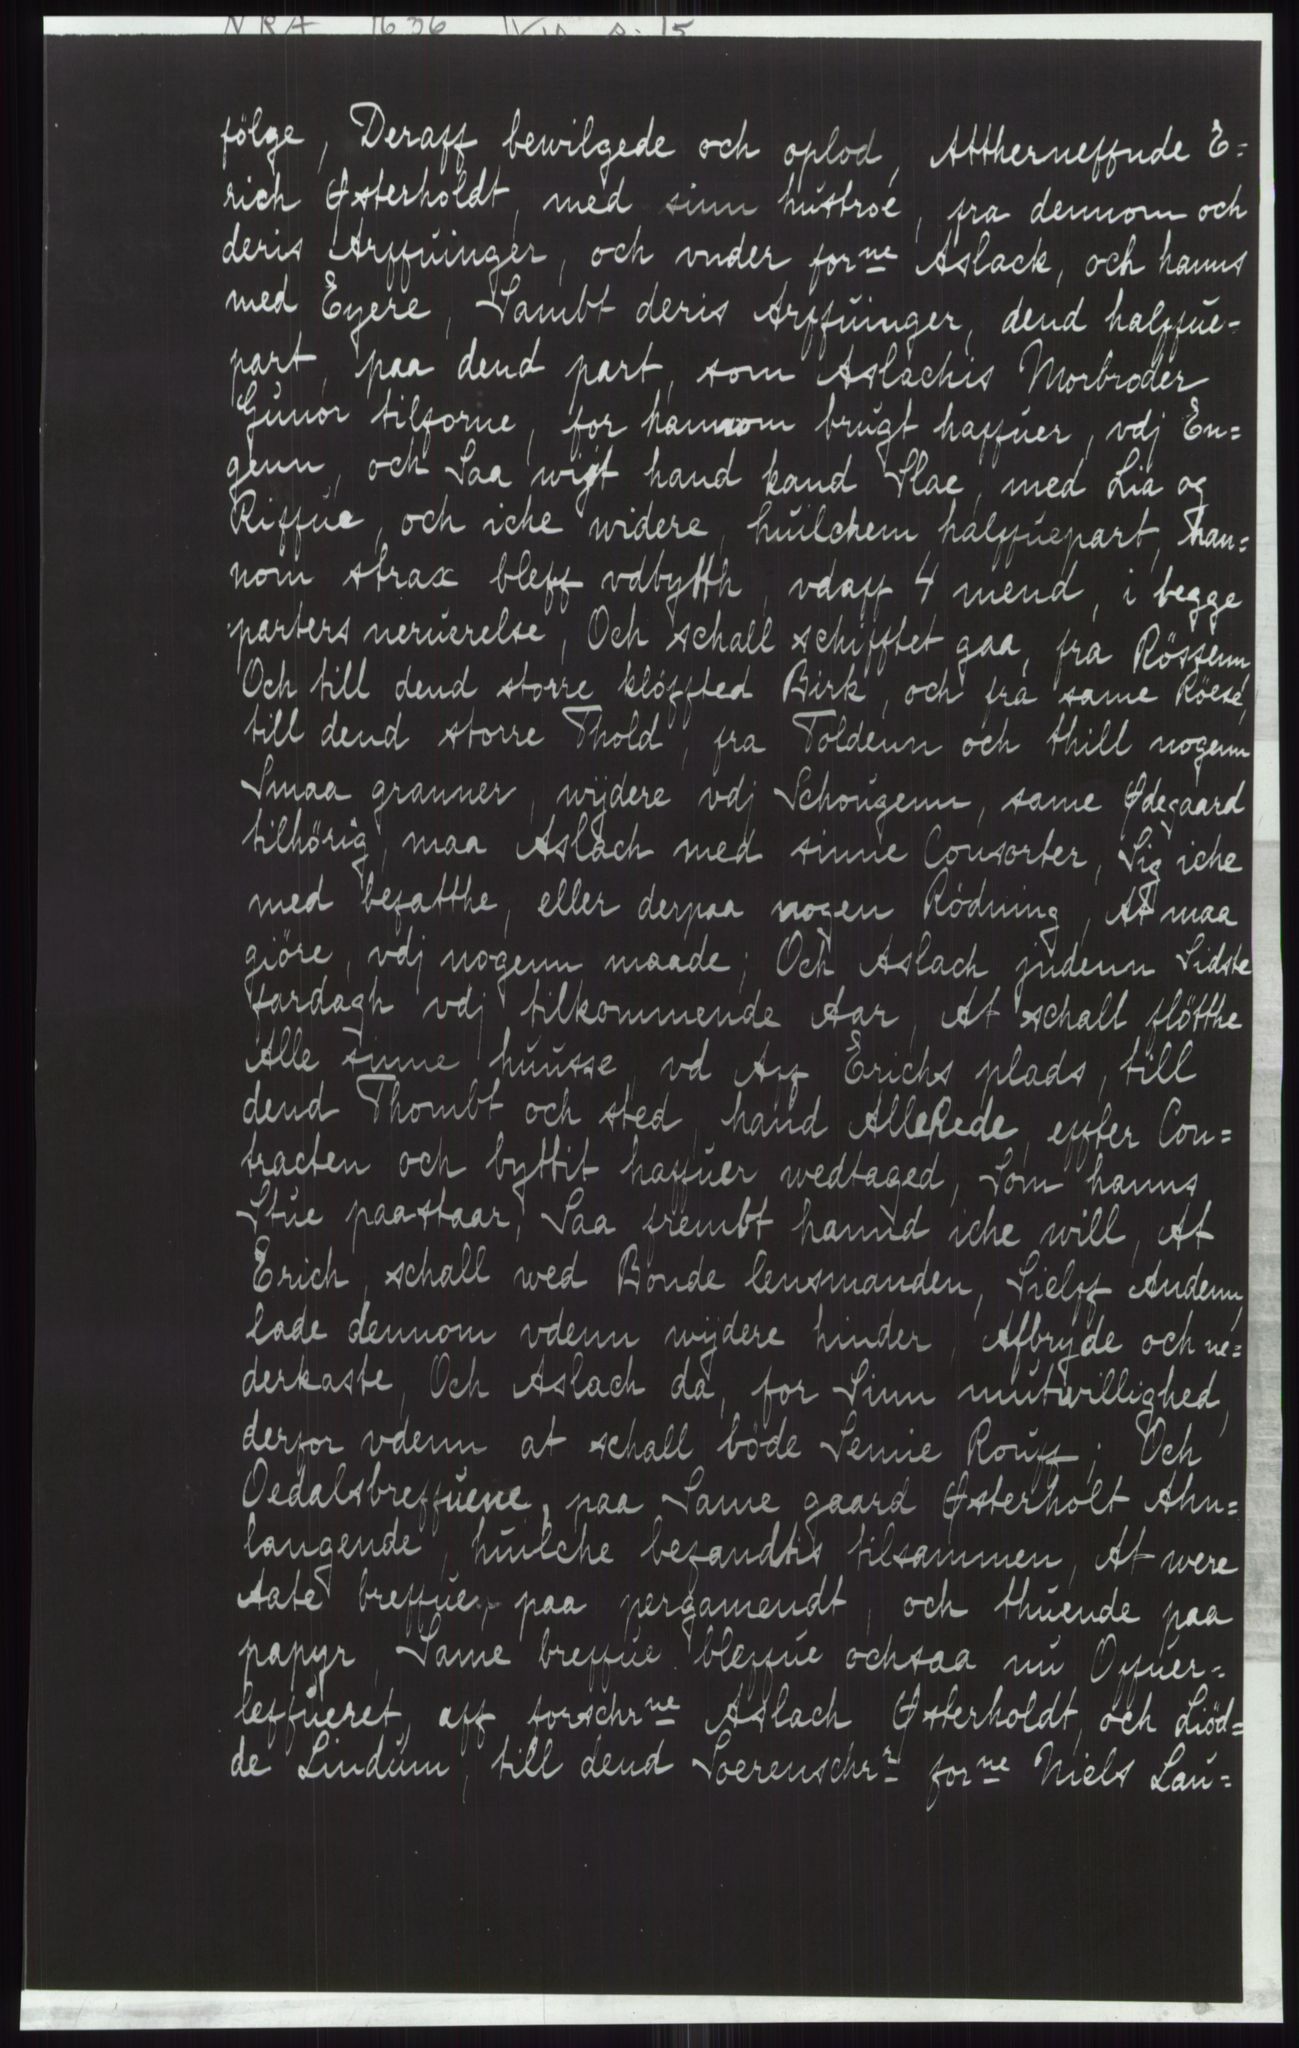 NRA 1636 p. 15
fölge, Deraff bewilgede och oplod, Attherneffnde E=
rich Østerholdt, med sinn hustroe, fra dennom och
deris Arffuinger, och vnder forne Aslack, och hanns
med Eyere, Sambt deris Arffuinger, dend halffue=
part, paa dend part, som Aslachis Morbroder
Gunor tilforne, for hannom brugt haffuer, vdj En=
genn, och Saa wigt hand kand Slae, med Lia og
Riffue, och iche widere, huilchem halffuepart, han=
nom strax bleff vdbytth, vdaff 4 mend, i begge
parters neruerelse, Och schall schifftet gaa, fra Rössenn,
Och till dend storre klöffted Birk, och fra same Röese,
till dend storre Thold, fra Toldenn och thill nogenn
Smaa granner, wijdere vdj Schougenn, same Ødegaard
tilhörig, maa Aslach med sinne Consorter, Sig iche
med befatthe, eller derpaa nogen Rödning, At maa
giöre, vdj nogenn maade; Och Aslach jndenn Sidste
fardagh vdj tilkommende Aar, At schall flötthe
Alle sinne huusse, vd Aff Erichs plads, till
dend Thombt och sted, hand AlleRede, effter Con=
tracten och byttit haffuer wedtaged, Som hanns
Stue paastaar, Saa frembt hannd iche will, At
Erich, schall wed Bonde lensmanden, Sielff Andenn,
lade dennom vdenn wijdere hinder, Afbryde och ne=
derkaste, Och Aslach da, for Sinn mutwillighed,
derfor vdenn at schall böde Semie Rouff; Och
Oedalsbreffuene, paa Same gaard Østerholt Ahn=
langende, huilche befandtis tilsammen, At were
Aate breffue paa pergamendt, och thuende paa
papyr, Same breffue bleffue ochsaa nu Offuer=
leffueret, aff forschrne Aslach Østerholdt, och Liöd=
de Lindum, till dend Soerenschrr forne Niels Lau=